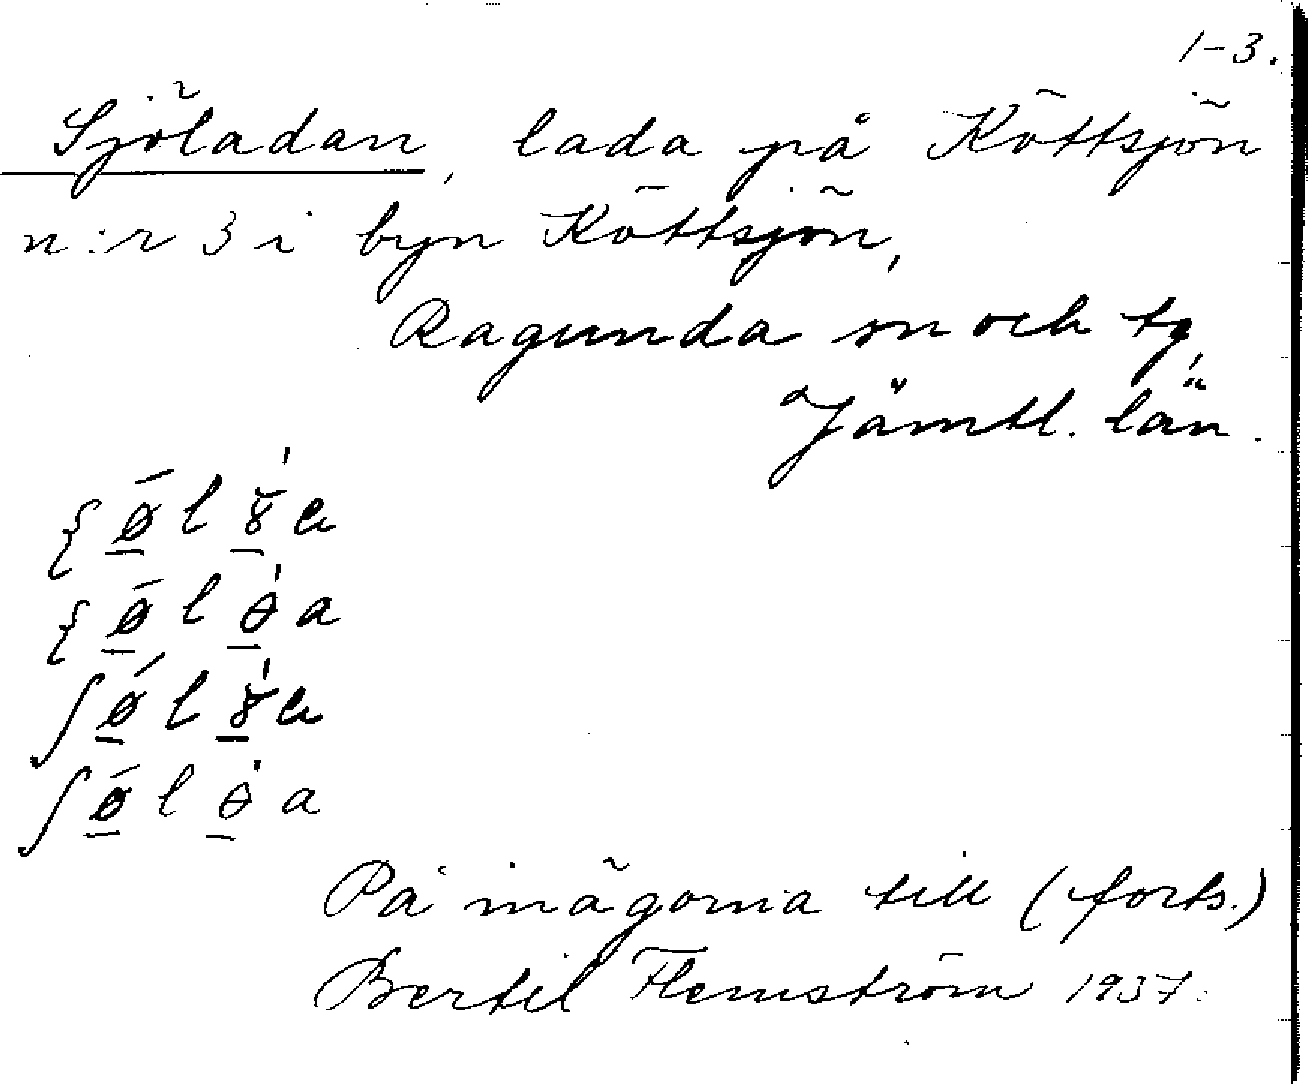 1-3.
Sjöladan, lada på Köttsjön
n:r 3 i byn Köttsjön,
Ragunda sn och tg,
Jämtl. län.
På inägorna till (forts.)
Bertil Flemström 1937.